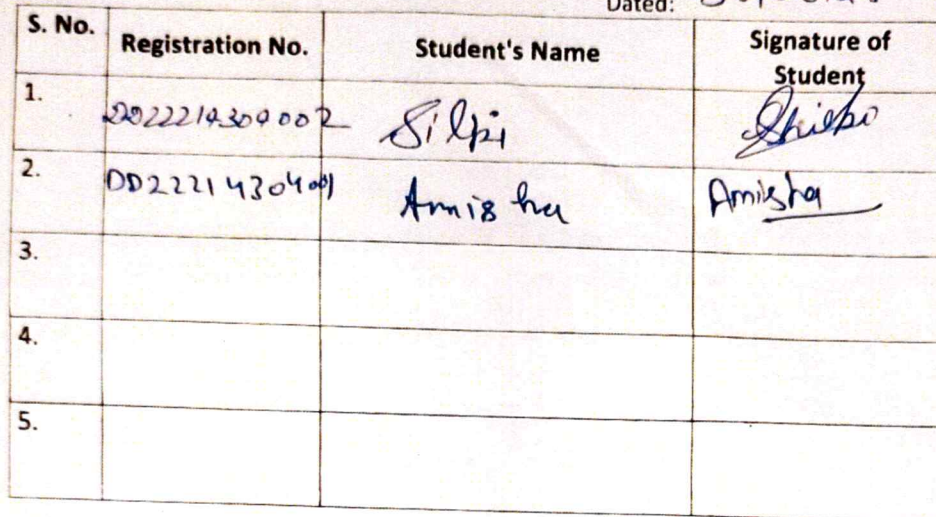 Dated:
S. No. Registration No. Student's Name Signature of Student
1. DD22214304002 Silpi Shilpi
2. DD22214304001 Amisha Amiksha
3.
4.
5.